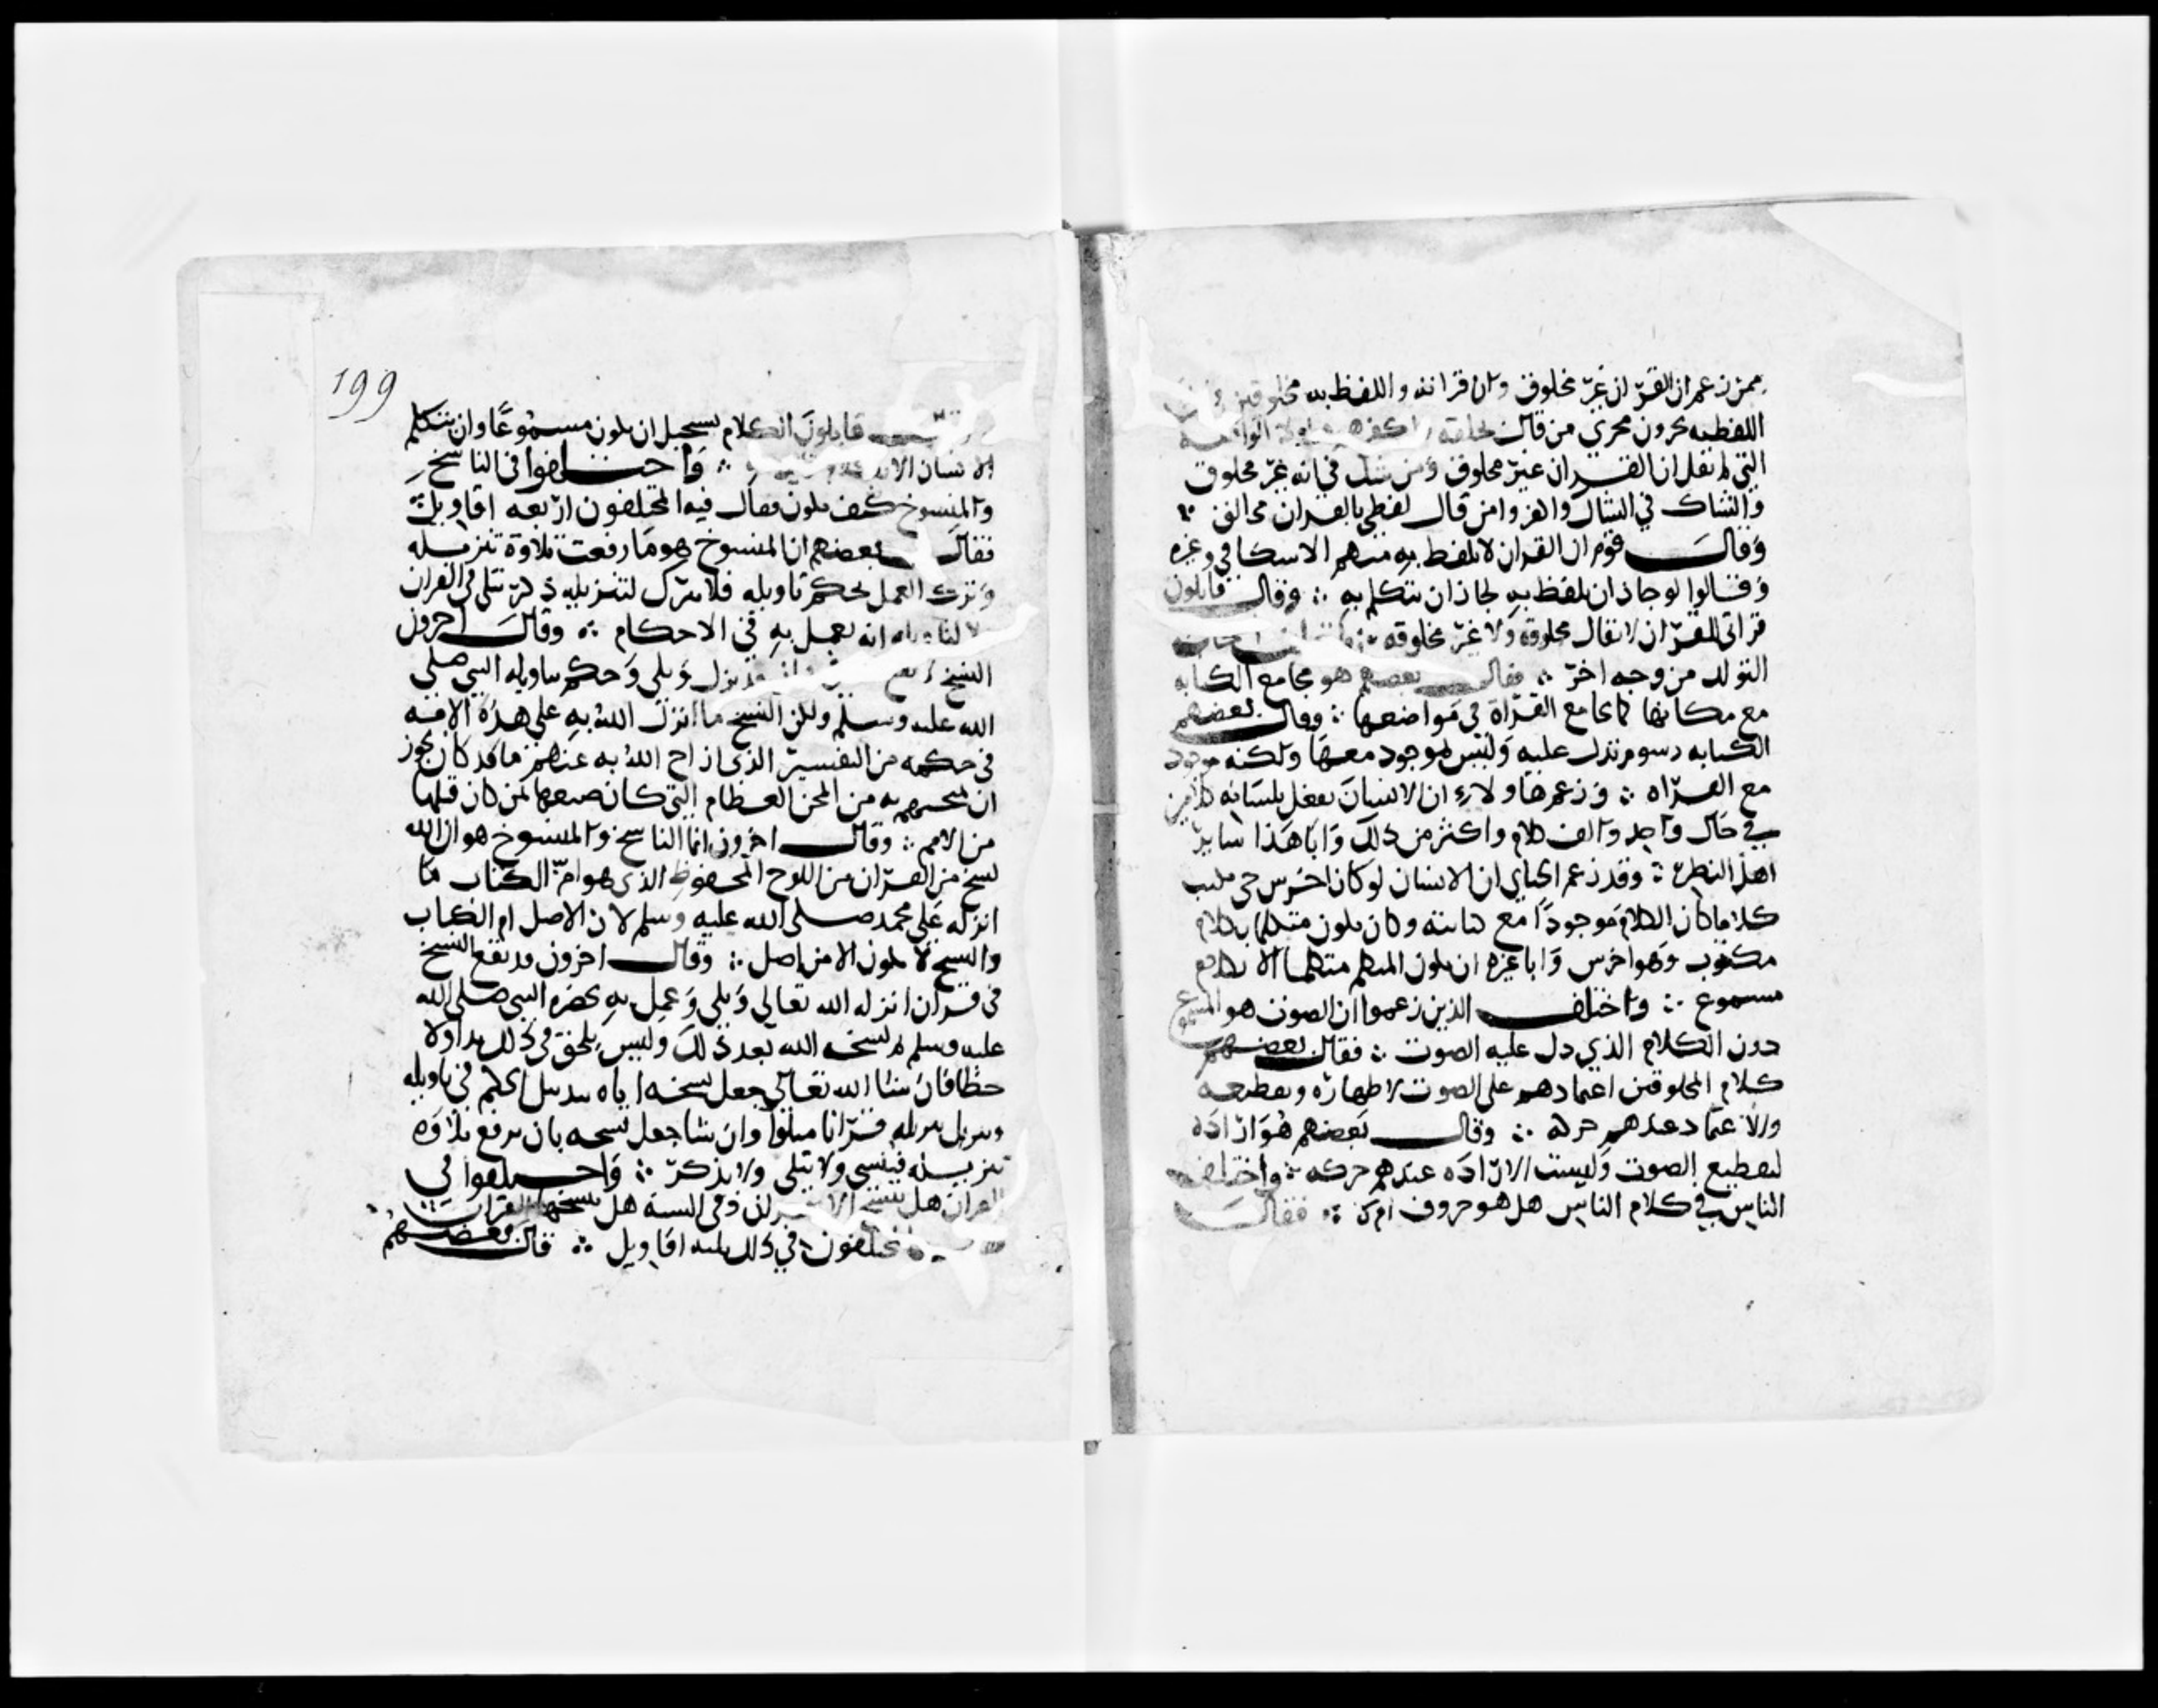 ممن زعم ان القران غير مخلوق وان قراته واللفظ به مخلوقين
اللفظيه يجرون مجرى من قال بخلقه واكفر هولا الواقفه
التي لم تقل ان القران غير مخلوق ومن شك في انه غير مخلوق
والشاك في الشاك واكفروا من قال لفظي بالقران مخلوق ⁘
وقال قوم ان القران لا يلفظ به منهم الاسكافي وغيره
وقالوا لو جاز ان يلفظ به لجاز ان يتكلم به ⁘ وقال قايلون
قراتي القران لا تقال مخلوقه ولا غير مخلوقه ⁘
التولد من وجه اخر ⁘ فقال بعضهم هو مجامع الكتابه
مع مكانها كما يجامع القراة في مواضعها ⁘ وقال بعضهم
الكتابه رسوم تدل عليه وليس بموجود معها ولكنه موجود
مع القراه ⁘ وزعم هاولاء ان الانسان يفعل بلسانه كلامين
في حال واحد والف كلام واكثر من ذلك وابا هذا ساير
اهل النظر ⁘ وقد زعم الجباي ان الانسان لو كان اخرس حتى كتب
كلاما كان الكلام موجودًا مع كتابته وكان يكون متكلما بكلام
مكتوب وهو اخرس وابا غيره ان يكون المتكلم متكلما الا بكلام
مسموع ⁘ واختلف الذين زعموا ان الصوت هو المسموع
دون الكلام الذي دل عليه الصوت ⁘ فقال بعضهم
كلام المخلوقين اعتمادهم على الصوت لاظهاره وتقطيعه
والاعتماد عندهم حركه ⁘ وقال بعضهم هو ارادة
لتقطيع الصوت وليست الارادة عندهم حركه ⁘ واختلف
الناس في كلام الناس هل هو حروف ام لا ⁘ فقال
199
قايلون الكلام يستحيل ان يكون مسموعًا وان يتكلم
الانسان الا ⁘ واختلفوا في الناسخ
والمنسوخ كيف يكون فقال فيه المختلفون اربعه اقاويل
فقال بعضهم ان المنسوخ هو ما رفعت تلاوة تنزيله
وترك العمل بحكم تاويله فلا يترك لتنزيله ذكر يتلى في القران
لا لتاويله انه يعمل به في الاحكام ⁘ وقال اخرون
النسخ نزل وتلي وحكم بتاويله النبي صلى
الله عليه وسلم ولكن النسخ ما انزل الله به على هذه الامه
في حكمه من التفسير الذي ازاح الله به عنهم ما قد كان يجوز
ان يمتحنهم به من المحن العظام التي كان صنعها بمن كان قبلها
من الامم ⁘ وقال اخرون انما الناسخ والمنسوخ هو ان الله
نسخ من القران من اللوح المحفوظ الذي هو ام الكتاب ما
انزله على محمد صلى الله عليه وسلم لان الاصل ام الكتاب
والنسخ لا يكون الا من اصل ⁘ وقال اخرون قد يقع النسخ
في قران انزله الله تعالى وتلي وعمل به بحضره النبي صلى الله
عليه وسلم ثم نسخه الله بعد ذلك وليس يلحق في ذلك بدا ولا
خطا فان شا الله تعالى جعل نسخه اياه بتبديل الحكم في تاويله
وبترك تنزيله قرانا متلوا وان شا جعل نسخه بان يرفع تلاوة
تنزيله فينسى ولا يتلى ولا يذكر ⁘ واختلفوا في
القران هل ينسخ الا بقران وفي السنه هل ينسخها القران
المختلفون في ذلك ثلثه اقاويل ⁘ قال بعضهم